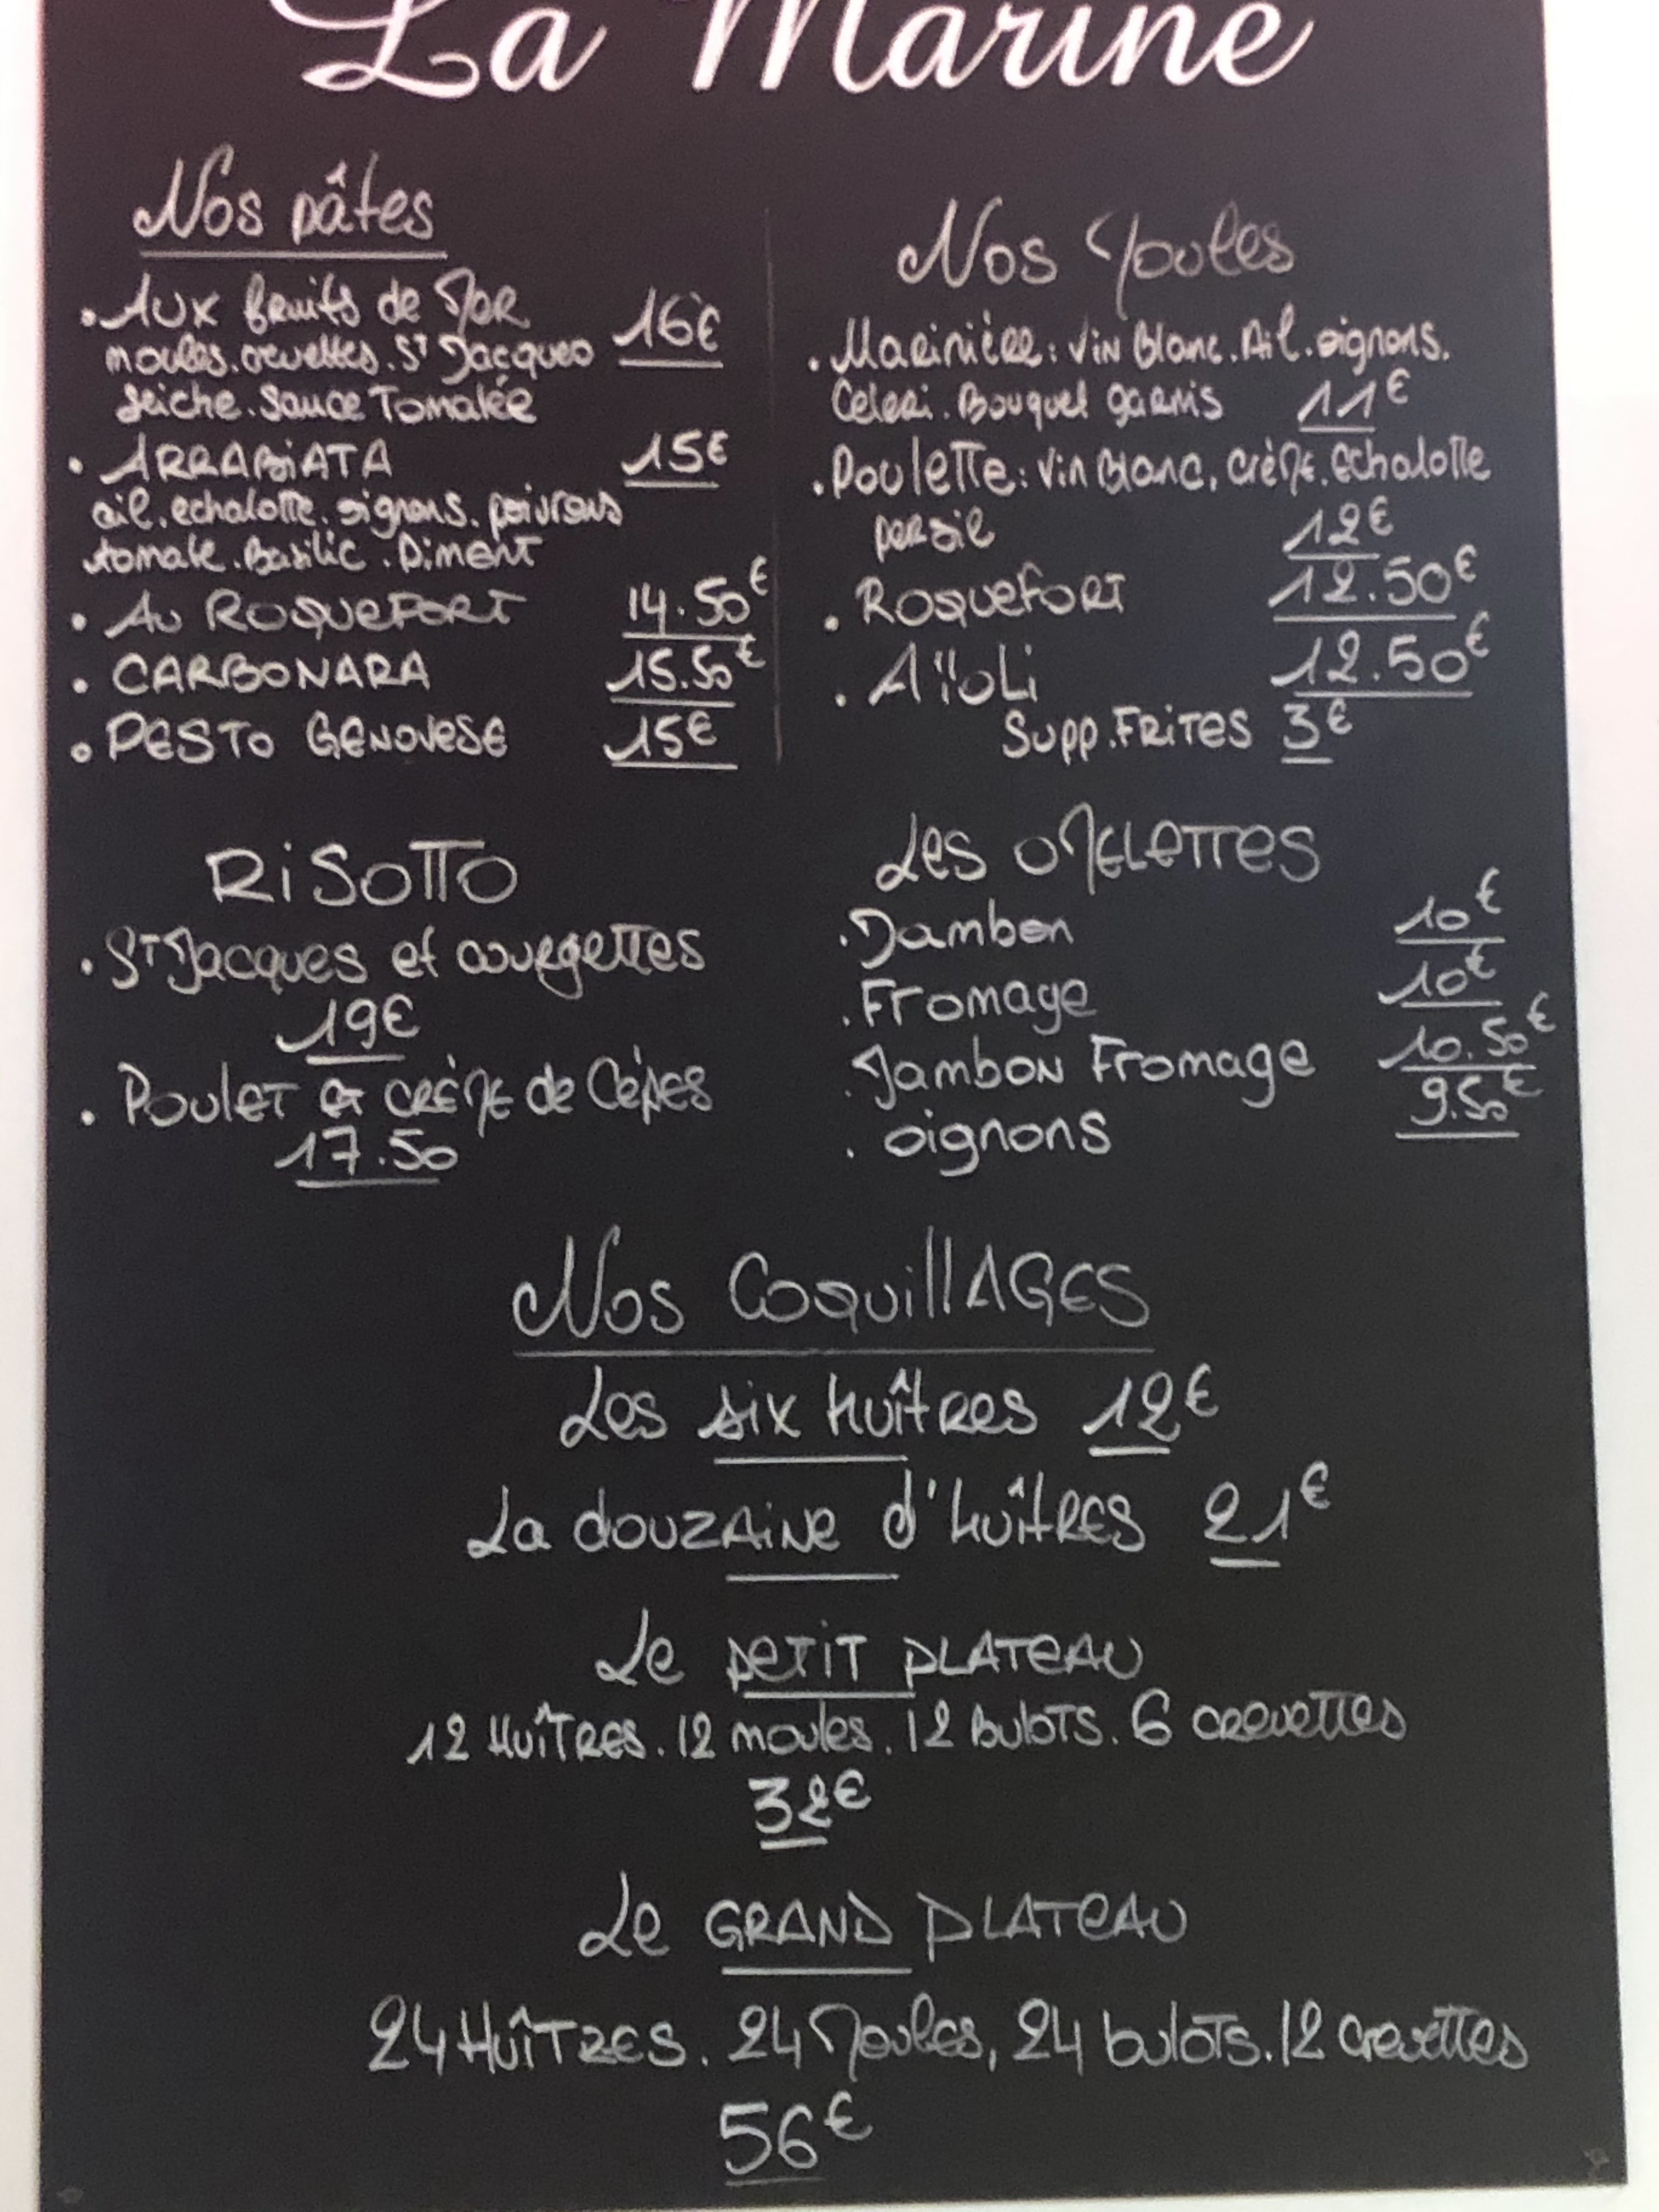 La Marine
Nos pâtes
• Aux fruits de Mer 16€
moules. crevettes. St Jacques
seiche. Sauce Tomatée
• ARRABiATA 15€
ail. echalotte. oignons. poivrons
tomate. Basilic. Piment
• Au ROQUEFORT 14.50€
• CARBONARA 15.50€
• PESTO GENOVESE 15€
Nos Moules
. Marinière: Vin Blanc. Ail. oignons.
Celeri. Bouquet garnis 11€
. Poulette: Vin Blanc, crème. echalotte
persil 12€
. Roquefort 12.50€
. Aïoli 12.50€
Supp. FRITES 3€
RiSOTTO
. St Jacques et courgettes
19€
. Poulet et crème de Cèpes
17.50
Les OMELETTES
. Jambon 10€
. Fromage 10€
. Jambon Fromage 10.50€
. oignons 9.50€
Nos CoquillAGES
Les six Huîtres 12€
La douzaine d'huîtres 21€
Le PETiT PLATEAU
12 Huîtres. 12 moules. 12 Bulots. 6 crevettes
32€
Le GRAND PLATEAU
24 Huîtres. 24 Moules, 24 bulots. 12 Crevettes
56€